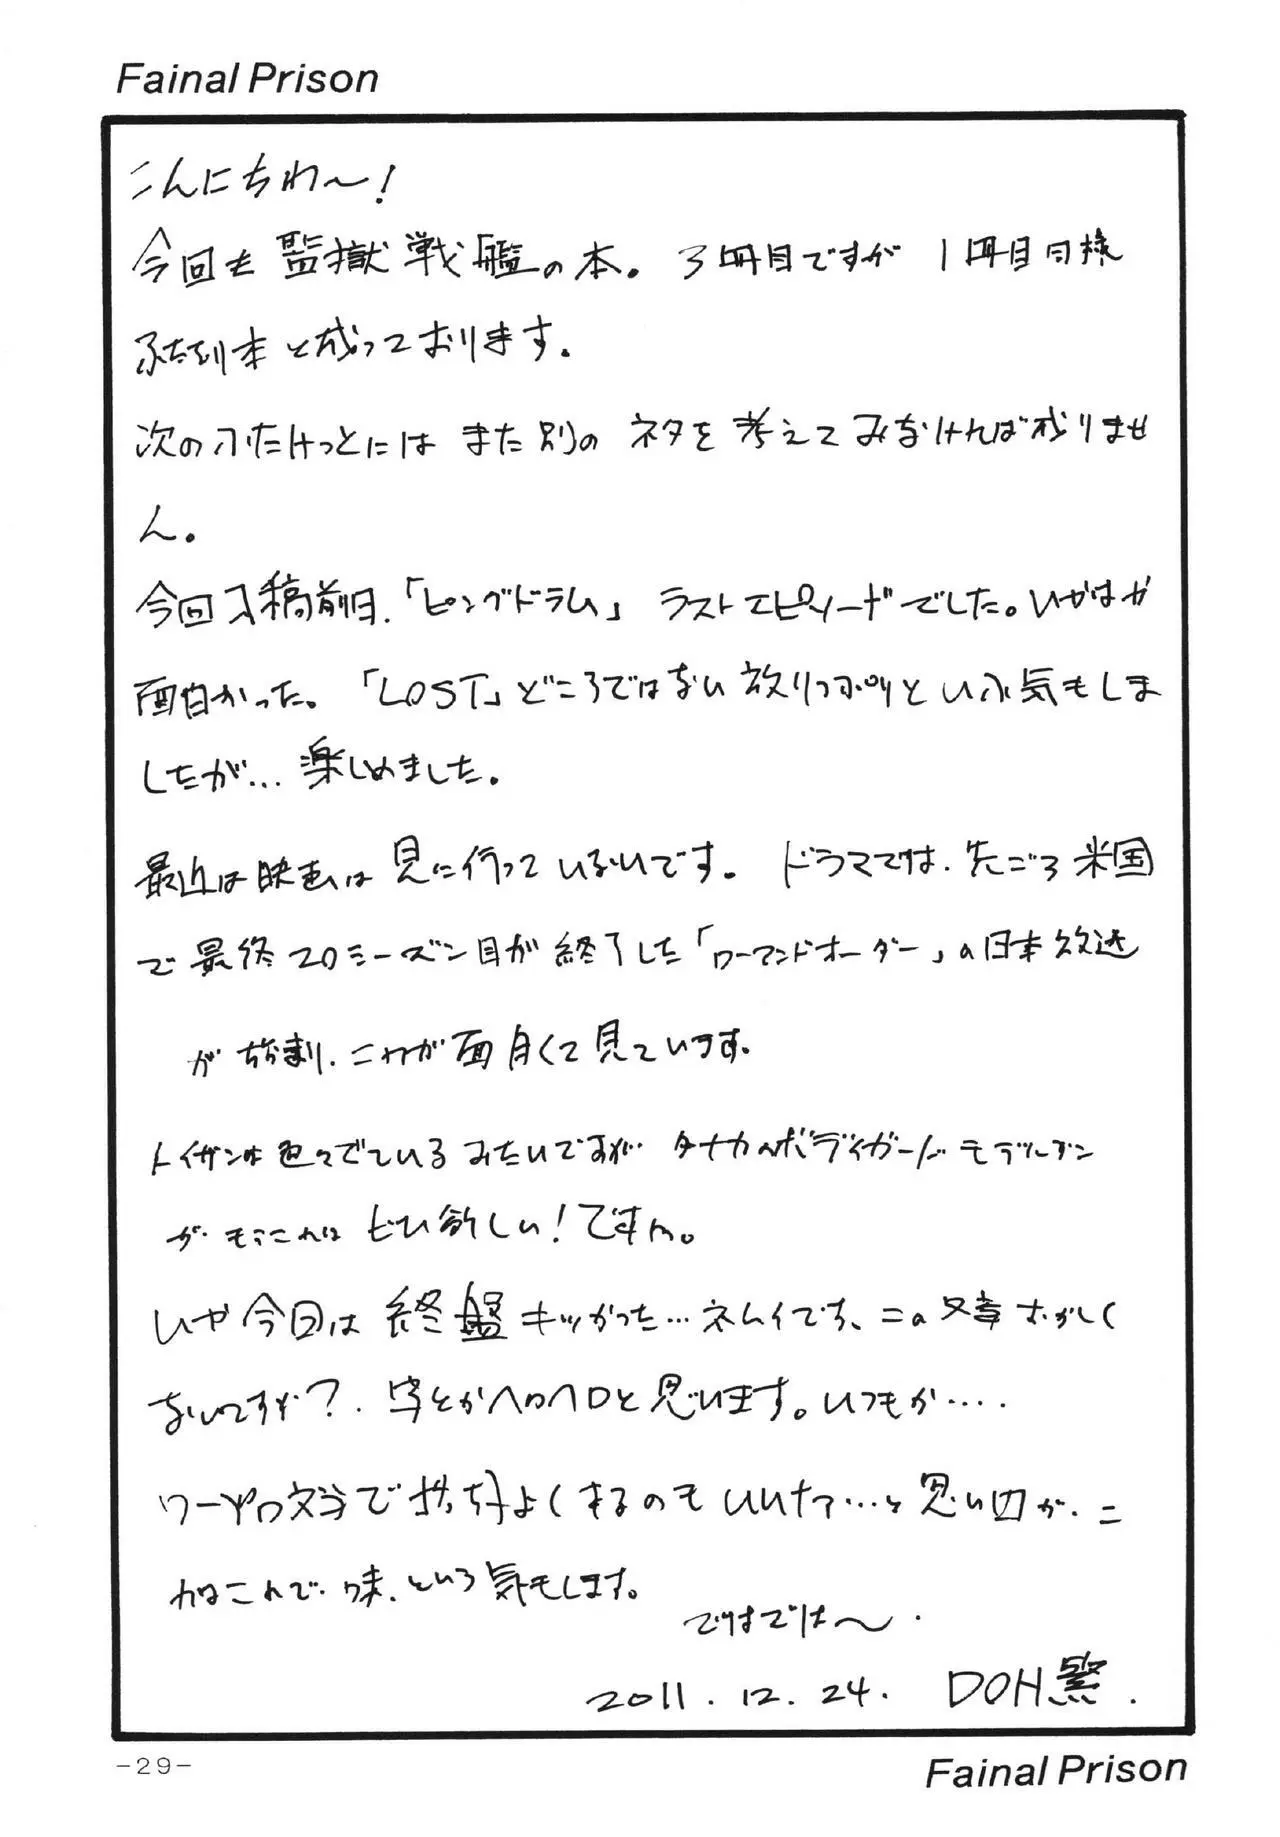 Fainal Prison
こんにちわ〜!
今回も監獄戦艦の本。3冊目ですが 1冊目同様
ふたなり本と成っております。
次のふたけっとには また別の ネタを考えてみなければ成りませ
ん。
今回入稿前日、「ピングドラム」 ラストエピソードでした。いやはや
面白かった。「LOST」どころではない放りっぷりという気もしま
したが…楽しめました。
最近は映画は見に行っていないです。 ドラマでは、先ごろ米国
で最終20シーズン目が終了した「ローアンドオーダー」の日本放送
が始まり、これが面白くて見ています。
トイガンは色々でているみたいですが… タナカのボディガードモデルガン
が、もうこれは ぜひ欲しい!ですね。
いや今回は終盤キツかった…ネムイです、この文章おかしく
ないですか?、字とかヘロヘロと思います。いつもか‥‥
ワープロ文字で格好よくするのもいいナァ…と思いロが、こ
れはこれで、味、という気もします。
ではでは〜.
2011.12.24. DOH繁.
-29-
Fainal Prison